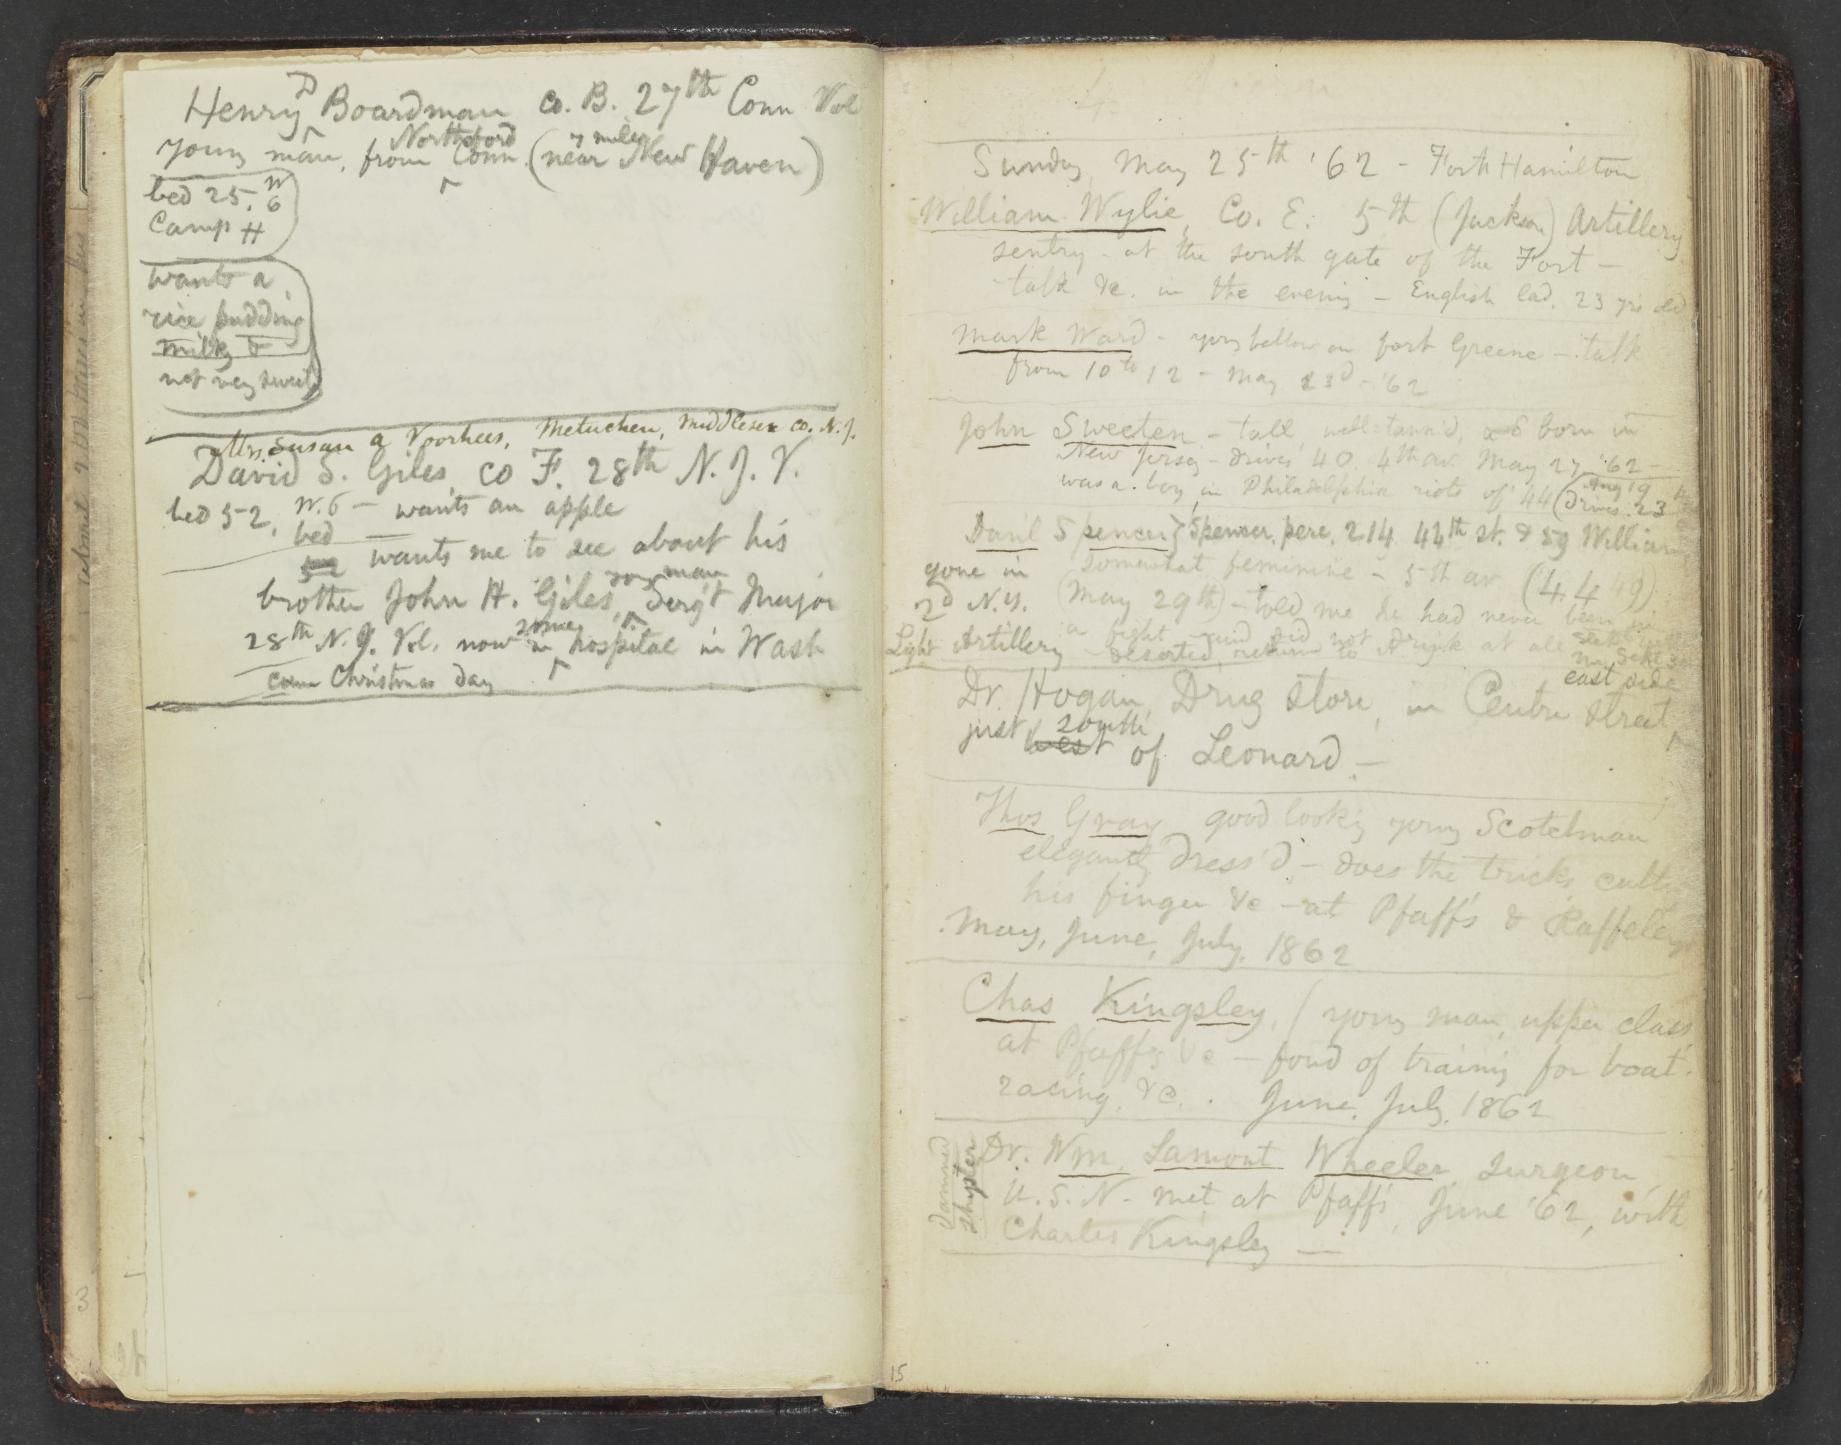 Henry D Boardman Co. B. 27th Conn Vol
young man, from Northford Conn. (7 miles near New Haven)
bed 25. W 6
Camp H
wants a
rice pudding
milky &
not very sweet
Mrs. Susan A Voorhees, Metuchen, Middlesex Co. N.J.
David S. Giles, Co F. 28th N. J. V.
bed 52, W. 6 — wants an apple
bed
52 wants me to see about his
brother John H. Giles, young man Serg't Major
28th N. J. Vol. now in some hospital in Wash
came Christmas day
3
Sunday, May 25th '62 - Fort Hamilton
William Wylie, Co. E. 5th (Jackson) Artillery
sentry - at the south gate of the Fort —
talk &c. in the evening — English lad. 23 yrs old
Mark Ward - young fellow on fort Greene — talk
from 10 to 12 — May 23d — '62
John Sweeten - tall, well-tann'd, born in
New Jersey - drives 40. 4th av. May 27 '62 —
was a boy in Philadelphia riots of '44 (Aug 19 drives 23
Danl Spencer} Spencer, pere, 214 44th st. & 59 William
gone in somewhat feminine - 5th av (44 49)
2d N.Y. (May 29th) - told me he had never been in
Light Artillery a fight and did not drink at all
deserted, returned to
east side
Dr. Hogan, Drug store, in Centre street
just west south of Leonard. —
Thos Gray good looking young Scotchman
elegantly dress'd — does the tricks, cutting
his finger &c — at Pfaff's &
May, June, July. 1862
Chas Kingsley, / young man, upper class,
at Pfaff's &c — fond of training for boat-
racing. &c. . June. July. 1862
damned
shyster
Dr. Wm. Lamont Wheeler, surgeon,
U. S. N. - met at Pfaff's, June '62, with
Charles Kingsley —
15